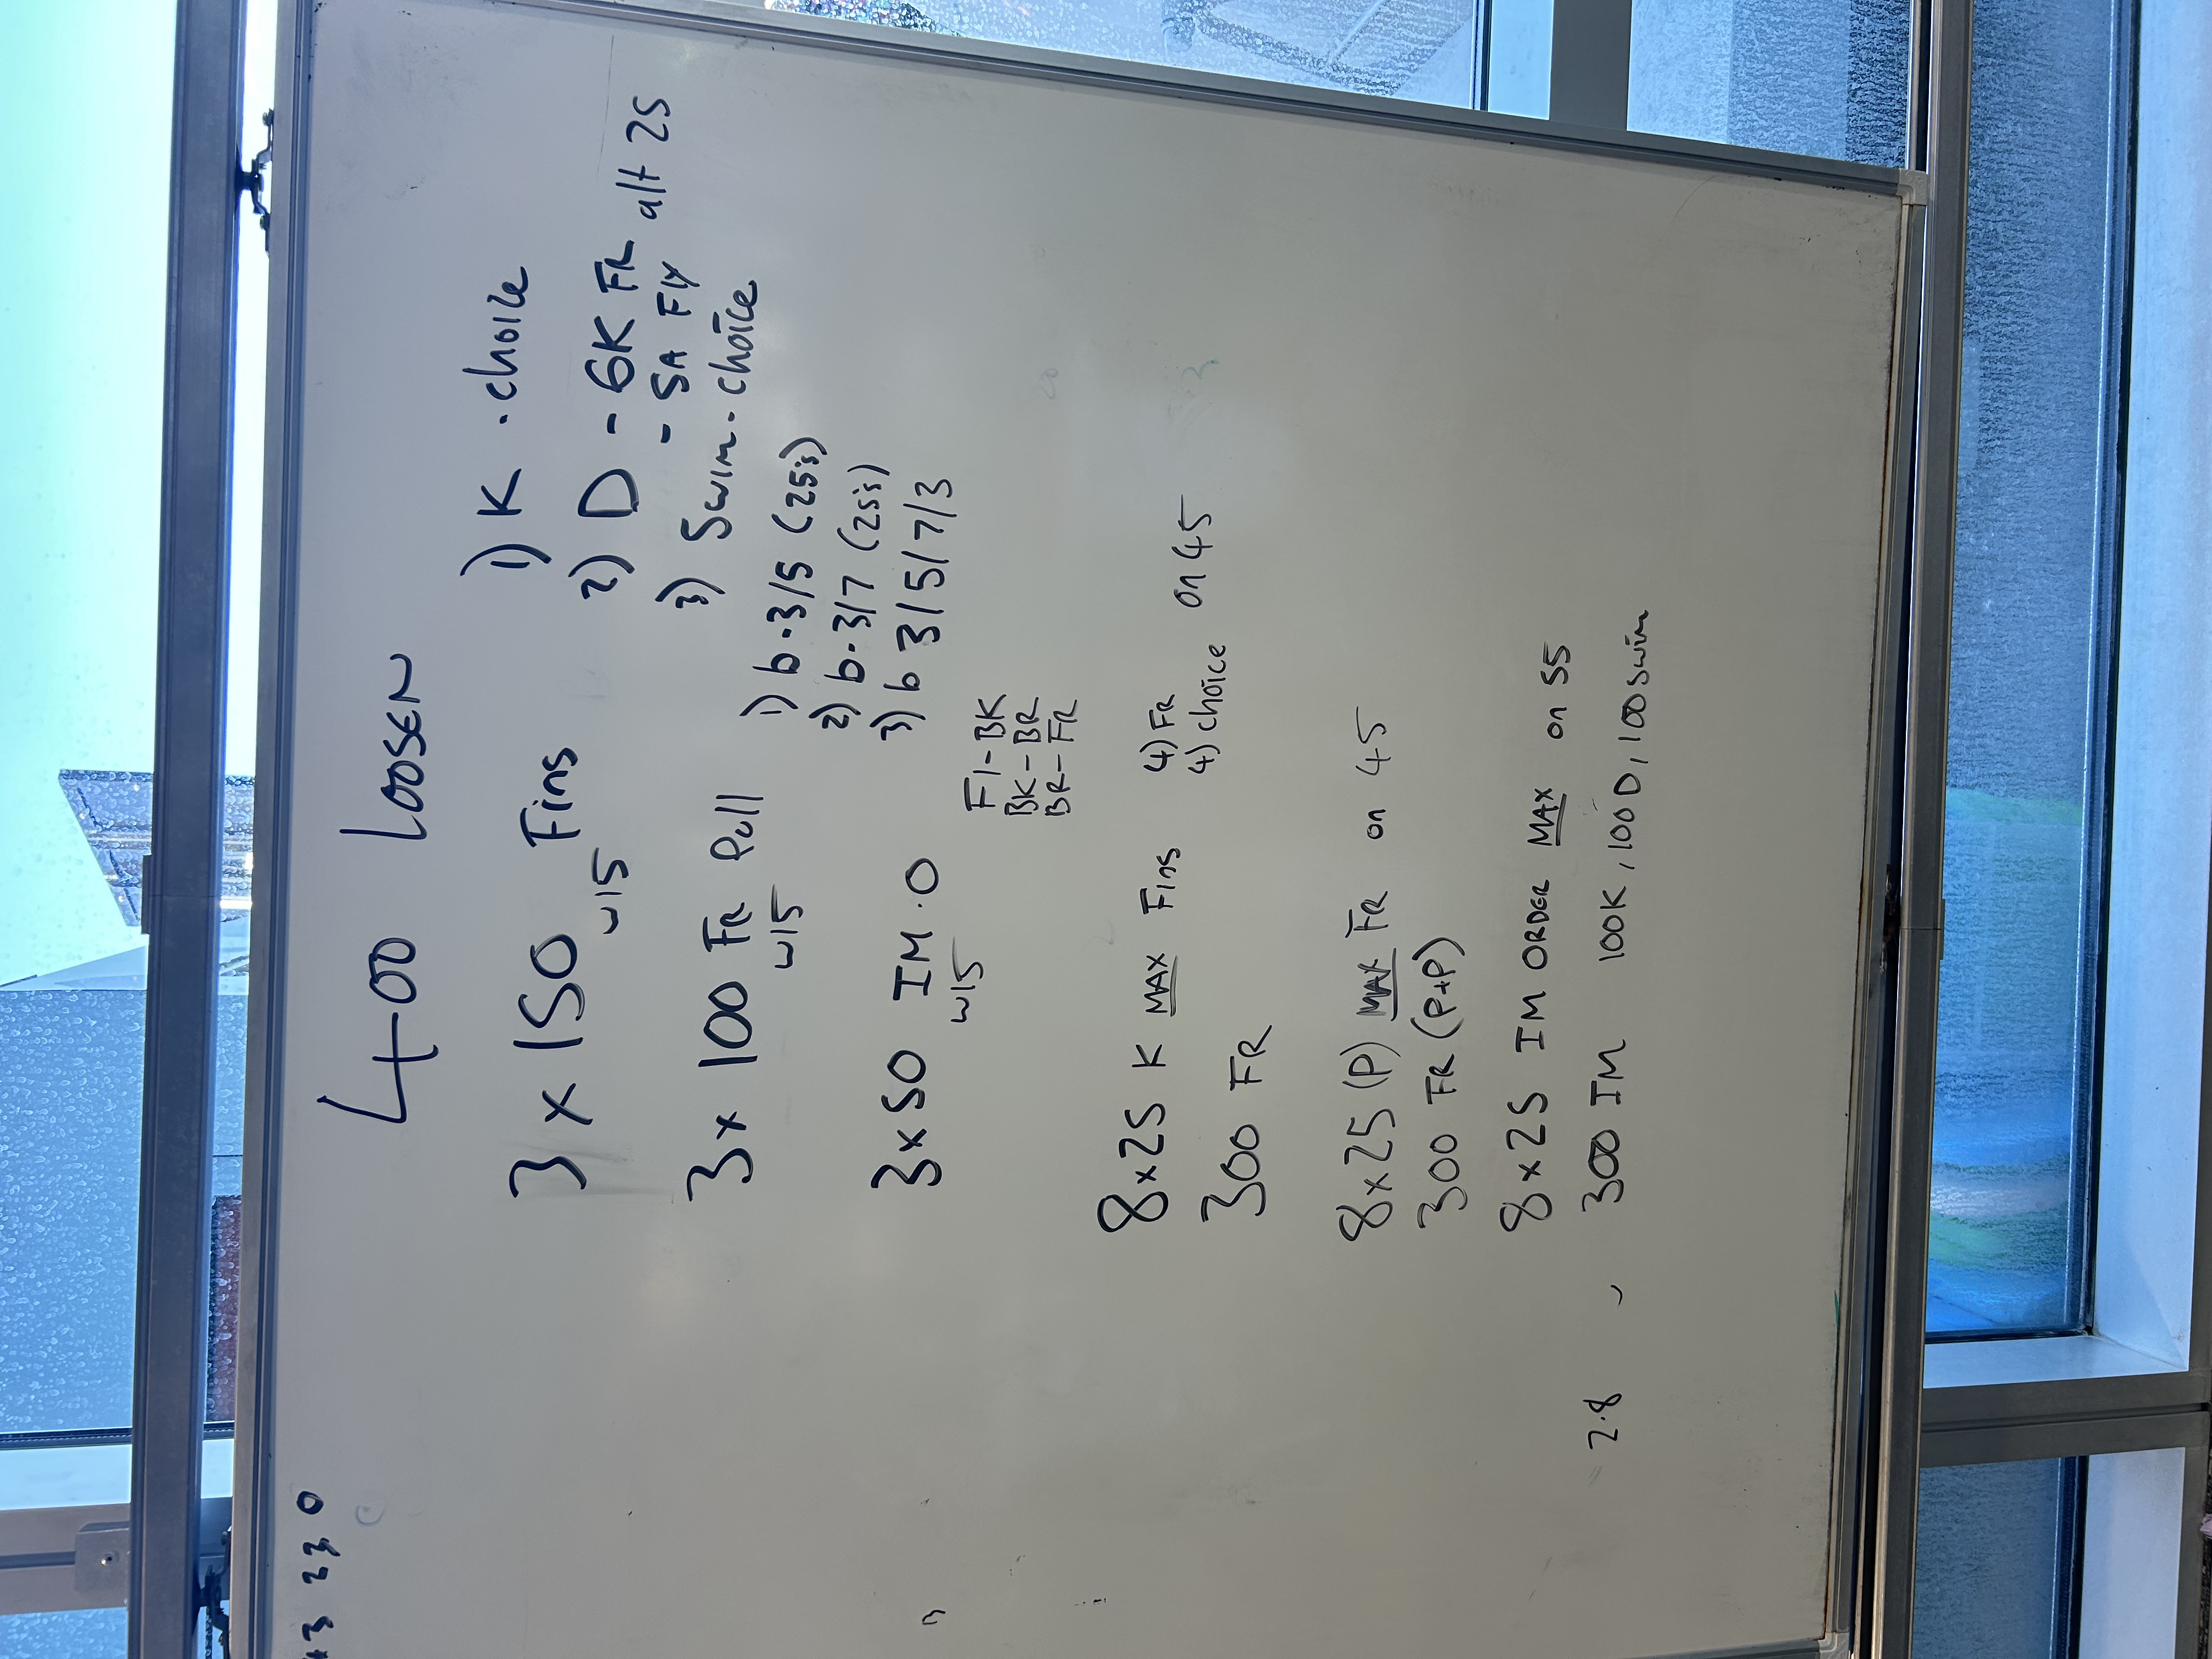 230
400 LOOSEN
3 x 150 Fins 1) K . choice
w15 2) D - 6K FR alt 25
- SA FLY
3) Swim . choice
3 x 100 FR Pull 1) b.3/5 (25s)
w15 2) b.3/7 (25s)
3) b 3/5/7/3
3 x 50 IM.O
w15 Fl-BK
BK-BR
BR-FR
8 x 25 K MAX Fins 4) FR
4) choice on 45
300 FR
8 x 25 (P) MAX FR on 45
300 FR (P+P)
8 x 25 IM ORDER MAX on 55
2.8 300 IM 100K, 100D, 100 swim